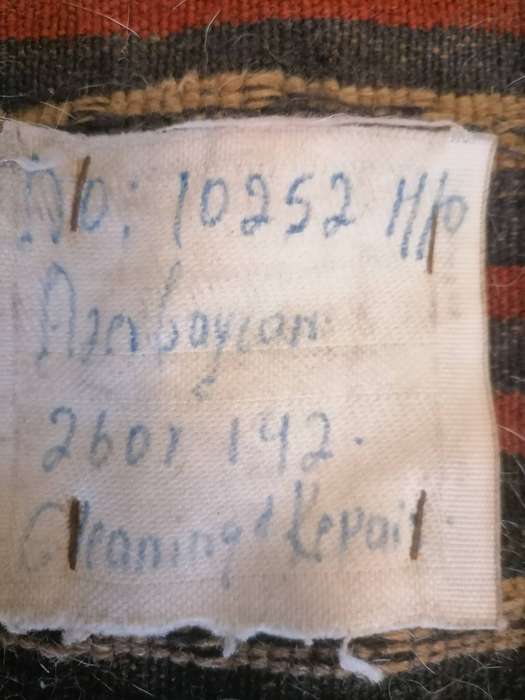 No: 10252 H/o
Azerbaycan
260x 142.
Cleaning & Repair.